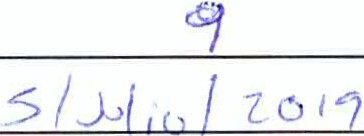 9
5/Julio/2019